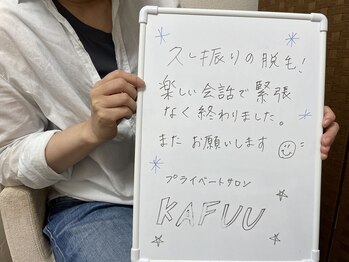 久し振りの脱毛!
楽しい会話で緊張
なく終わりました。
また お願いします
プライベートサロン
KAFUU